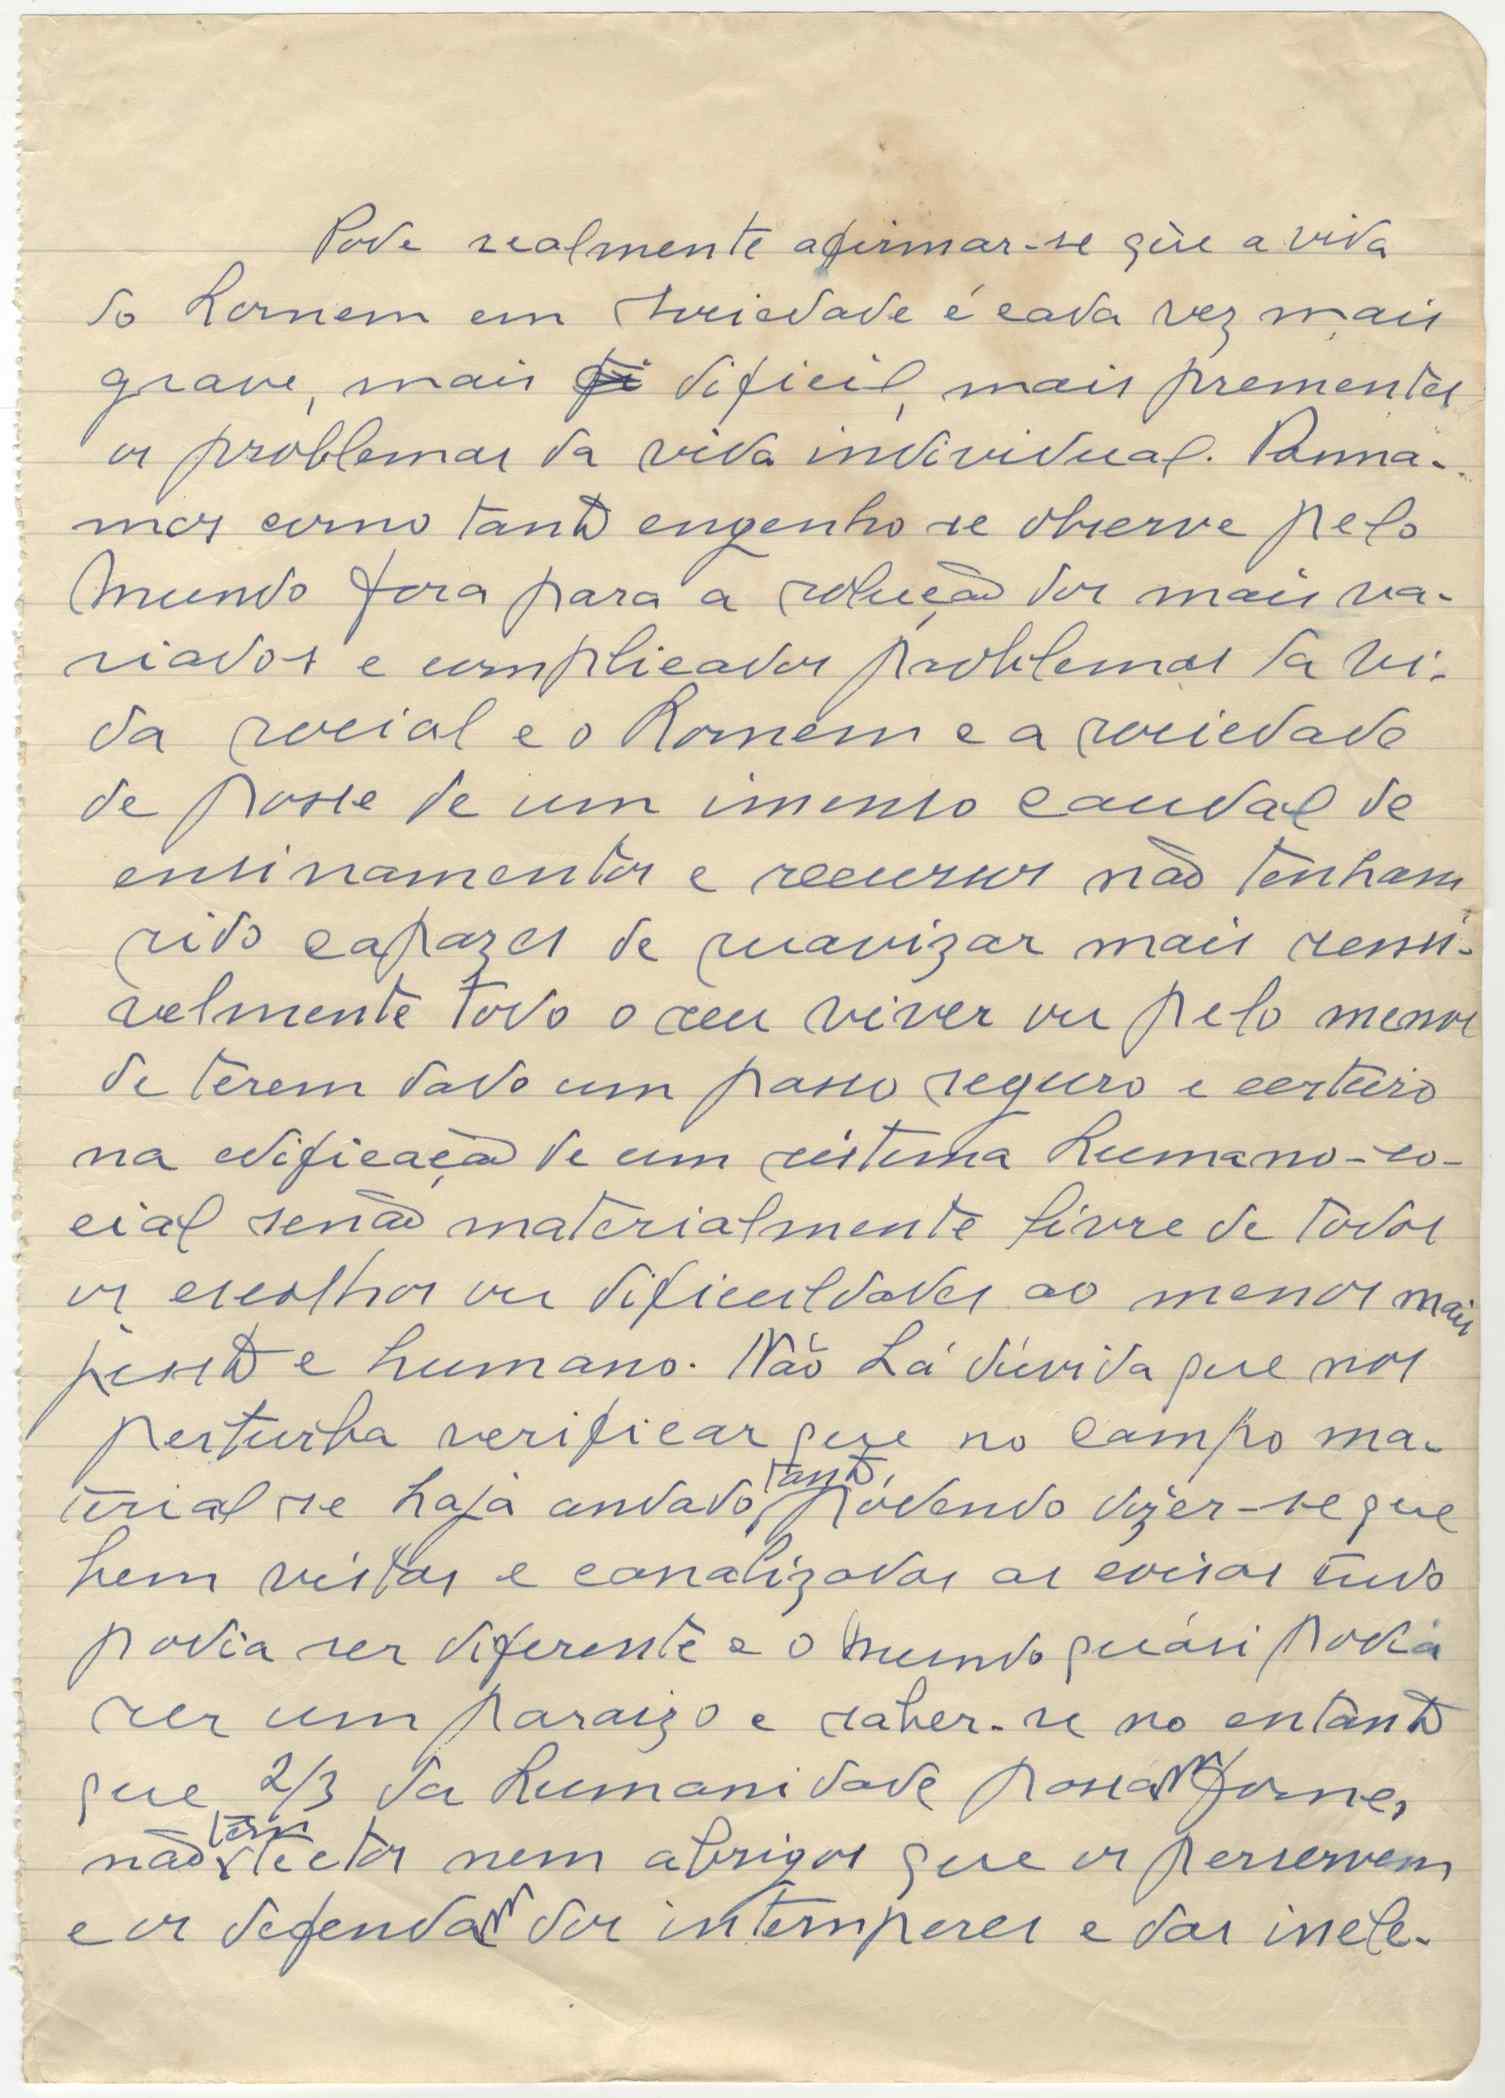 Pode realmente afirmar-se que a vida
do homem em sociedade é cada vez mais
grave, mais dificil, mais prementes
os problemas da vida individual. Pasma-
mos como tanto engenho se observe pelo
Mundo fora para a solução dos mais va-
riados e complicados problemas da vi-
da social e o homem e a sociedade
de posse de um imenso caudal de
ensinamentos e recursos não tenham
sido capazes de suavizar mais sensi-
velmente todo o seu viver ou pelo menos
de terem dado um passo seguro e certeiro
na edificação de um sistema humano-so-
cial senão materialmente livre de todos
os escolhos ou dificuldades ao menos mais
justo e humano. Não há dúvida que nos
perturba verificar que no campo ma-
terial se haja andado tanto, podendo dizer-se que
bem vistas e canalizadas as coisas tudo
podia ser diferente e o Mundo quási podia
ser um paraizo e saber-se no entanto
que 2/3 da humanidade passam fome,
não tem tectos nem abrigos que os perservem
e os defendam dos intemperes e das incle-